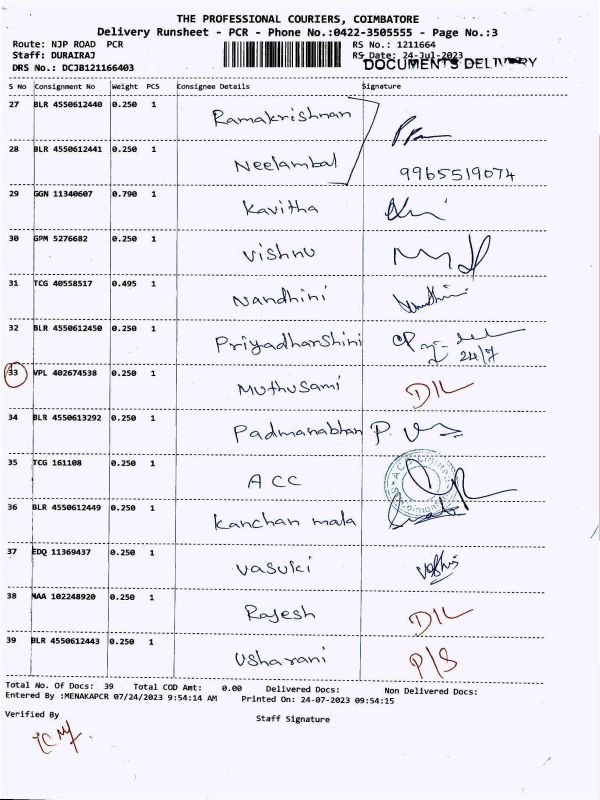 THE PROFESSIONAL COURIERS, COIMBATORE
Delivery Runsheet - PCR - Phone No.:0422-3505555 - Page No.:3
Route: NJP ROAD PCR RS No.: 1211664
Staff: DURAIRAJ RS Date: 24-Jul-2023
DOCUMENTS DELIVERY
DRS No.: DCJB121166403
S No Consignment No Weight PCS Consignee Details Signature
27 BLR 4550612440 0.250 1 Ramakrishnan
28 BLR 4550612441 0.250 1 Neelambal 9965519074
29 GGN 11340607 0.790 1 Kavitha
30 GPM 5276682 0.250 1 Vishnu
31 TCG 40558517 0.495 1 Nandhini
32 BLR 4550612450 0.250 1 Priyadharshini 24/7
33 VPL 402674538 0.250 1 Muthusami D/L
34 BLR 4550613292 0.250 1 Padmanabhan
35 TCG 161108 0.250 1 ACC
36 BLR 4550612449 0.250 1 Kanchan mala
37 EDQ 11369437 0.250 1 Vasuki
38 MAA 102248920 0.250 1 Rajesh D/L
39 BLR 4550612443 0.250 1 Usharani P/S
Total No. Of Docs: 39 Total COD Amt: 0.00 Delivered Docs: Non Delivered Docs:
Entered By :MENAKAPCR 07/24/2023 9:54:14 AM Printed On: 24-07-2023 09:54:15
Verified By Staff Signature